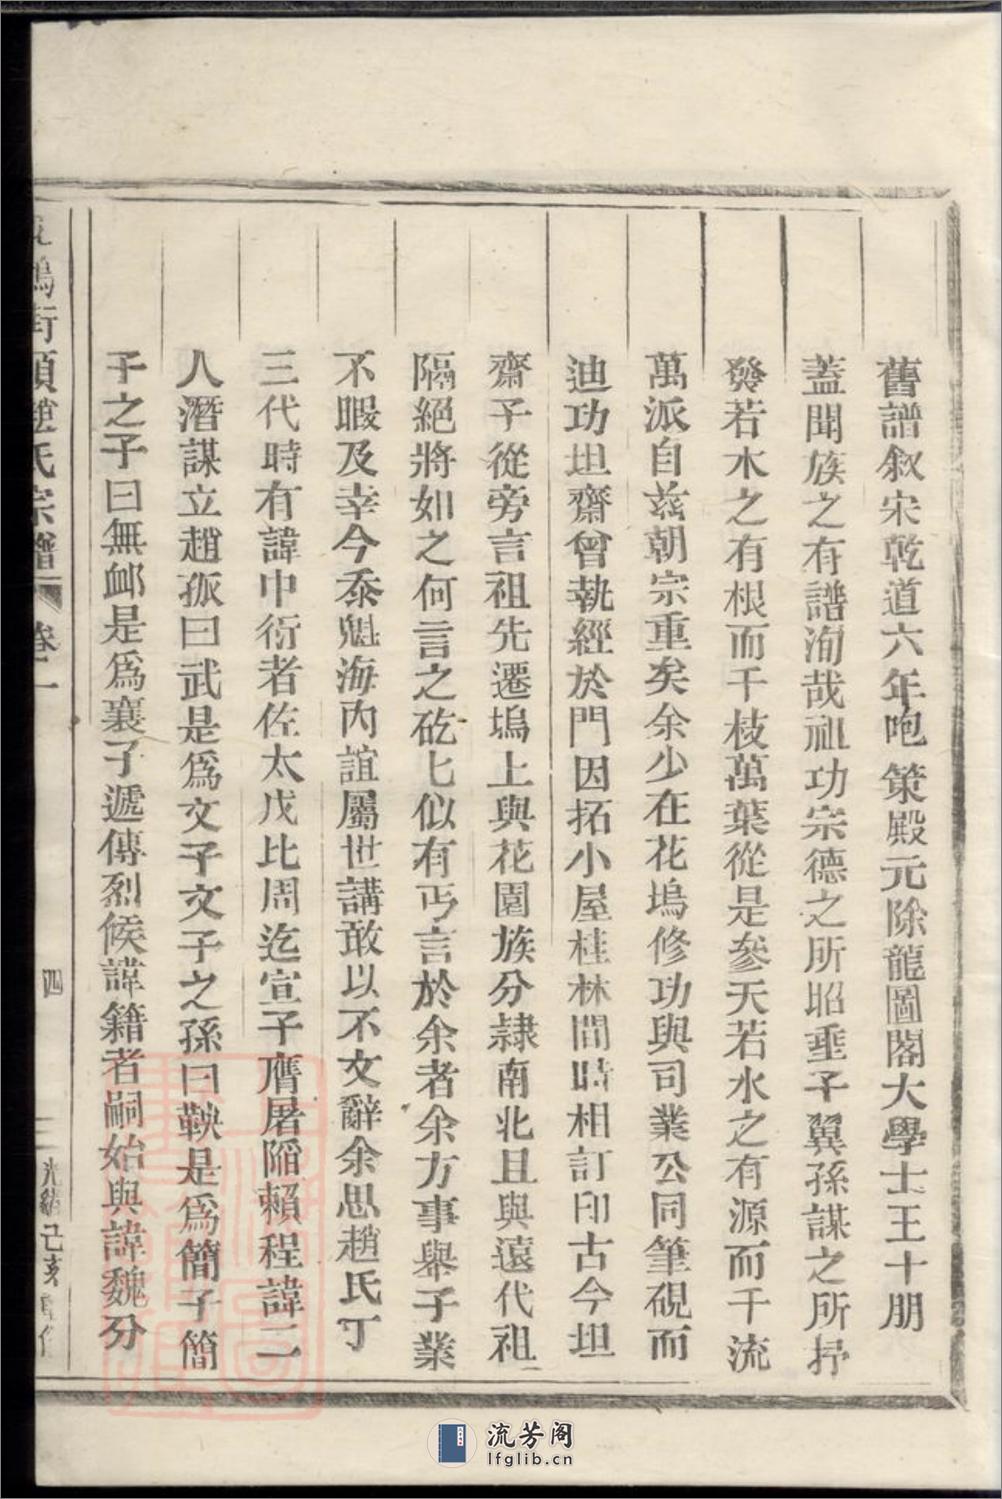 舊譜敘宋乾道六年咆 策殿元除龍圖閣大學士王十朋
蓋聞族之有譜洵哉祖功宗德之所昭垂子翼孫謀之所抒
發若木之有根而千枝萬葉從是參天若水之有源而千流
萬派自兹朝宗重矣余少在花塢修功與司業公同筆硯而
迪功坦齋曾執經於門因拓小屋桂林間時相訂印古今坦
齋予從旁言祖先遷塢上與花園族分隷南北且與遠代祖
隔絕將如之何言之矻匕似有丐言於余者余方事舉子業
不暇及幸今忝魁海內誼屬世講敢以不文辭余思趙氏丁
三代時有諱中衍者佐太戊比周迄宣子膺屠陷賴程諱二
人潛謀立趙孤曰武是爲文子文子之孫曰鞅是爲簡子簡
子之子曰無卹是爲襄子遞傳烈候諱籍者嗣始與諱魏分
塢街頭趙氏宗譜 卷一 四 光緒己亥重修
流芳阁
lfglib.cn